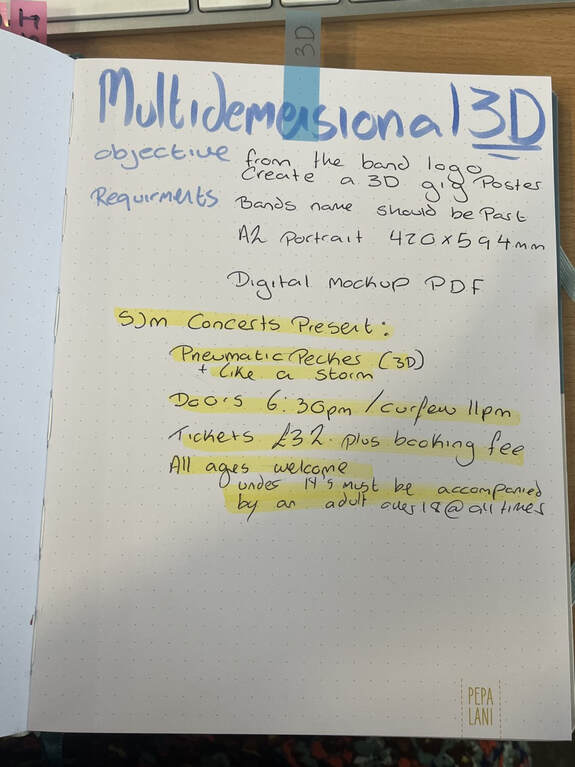 3D
Multidemensional 3D
objective from the band logo
Create a 3D gig Poster
Requirments Bands name should be Part
A2 Portrait 420x594mm
Digital Mockup PDF
SJM Concerts Present:
Pneumatic Peckes (3D)
+ Like a Storm
Doors 6:30pm / curfew 11pm
Tickets £32. plus booking fee
All ages welcome
under 14's must be accompanied
by an adult over 18 @ all times
PEPA
LANI